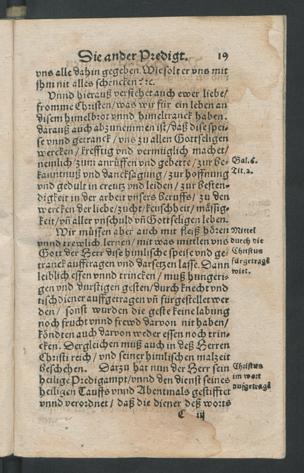 Die ander Predigt. 19
vns alle dahin gegeben. Wie solt er vns mit
ihm nit alles schencken? ꝛc.
Vnnd hierauß verstehet auch ewer liebe /
fromme Christen / was wir für ein leben an
disem himelbrot vnnd himeltranck haben.
darauß auch abzunemmen ist / daß dise spei-
se vnnd getranck / vns zu allen Gottseligen
wercken / krefftig vnd vermüglich machet /
nemlich / zum anrüffen vnd gebette / zur be-
kanntnuß vnd dancksagung / zur hoffnung
vnd gedult in creutz vnd leiden / zur besten-
digkeit in der arbeit vnsers beruffs / zu den
wercken der liebe / zucht / keuschheit / mässig-
keit / vñ aller vnschuld vñ Gottseligen leben.
Gal. 6.
Tit. 2.
Wir müssen aber auch mit fleiß hören
vnnd trewlich lernen / mit was mittlen vns
Gott der Herr dise himlische speise vnd ge-
tranck aufftragen vnd darsetzen lasse. Dann
leiblich essen vnnd trincken / muß hungeri-
gen vnd durstigen gesten / durch knecht vnd
tischdiener auffgetragen vñ fürgestellt wer-
den / sonst wurden die geste kein labung
noch frucht vnnd frewd darvon nit haben /
köndten auch darvon weder essen noch trin-
cken. Dergleichen muß auch in deß Herren
Christi reich / vnd seiner himlischen malzeit
geschehen. Darzu hat nun der Herr sein
heilige Predigampt / vnnd den dienst seines
heiligen Tauffs vnnd Abentmals gestifftet
vnnd verordnet / daß die diener deß worts
Mittel
durch die
Christus
fürgetragẽ
wirt.
Christus
im wort
aufgetragẽ
C iij